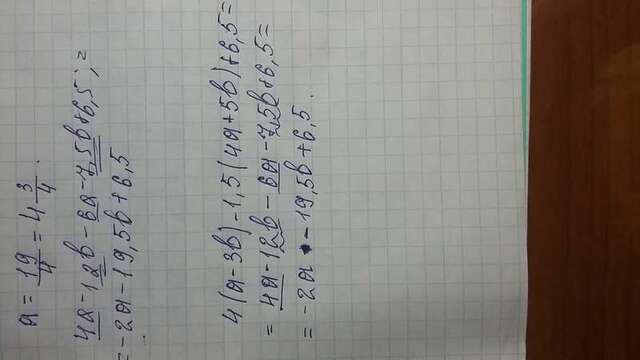 a = 19/4 = 4 3/4.
4a - 12b - 6a - 7,5b + 6,5; =
= -2a - 19,5b + 6,5
4(a - 3b) - 1,5(4a + 5b) + 6,5 =
= 4a - 12b - 6a - 7,5b + 6,5 =
= -2a - 19,5b + 6,5.